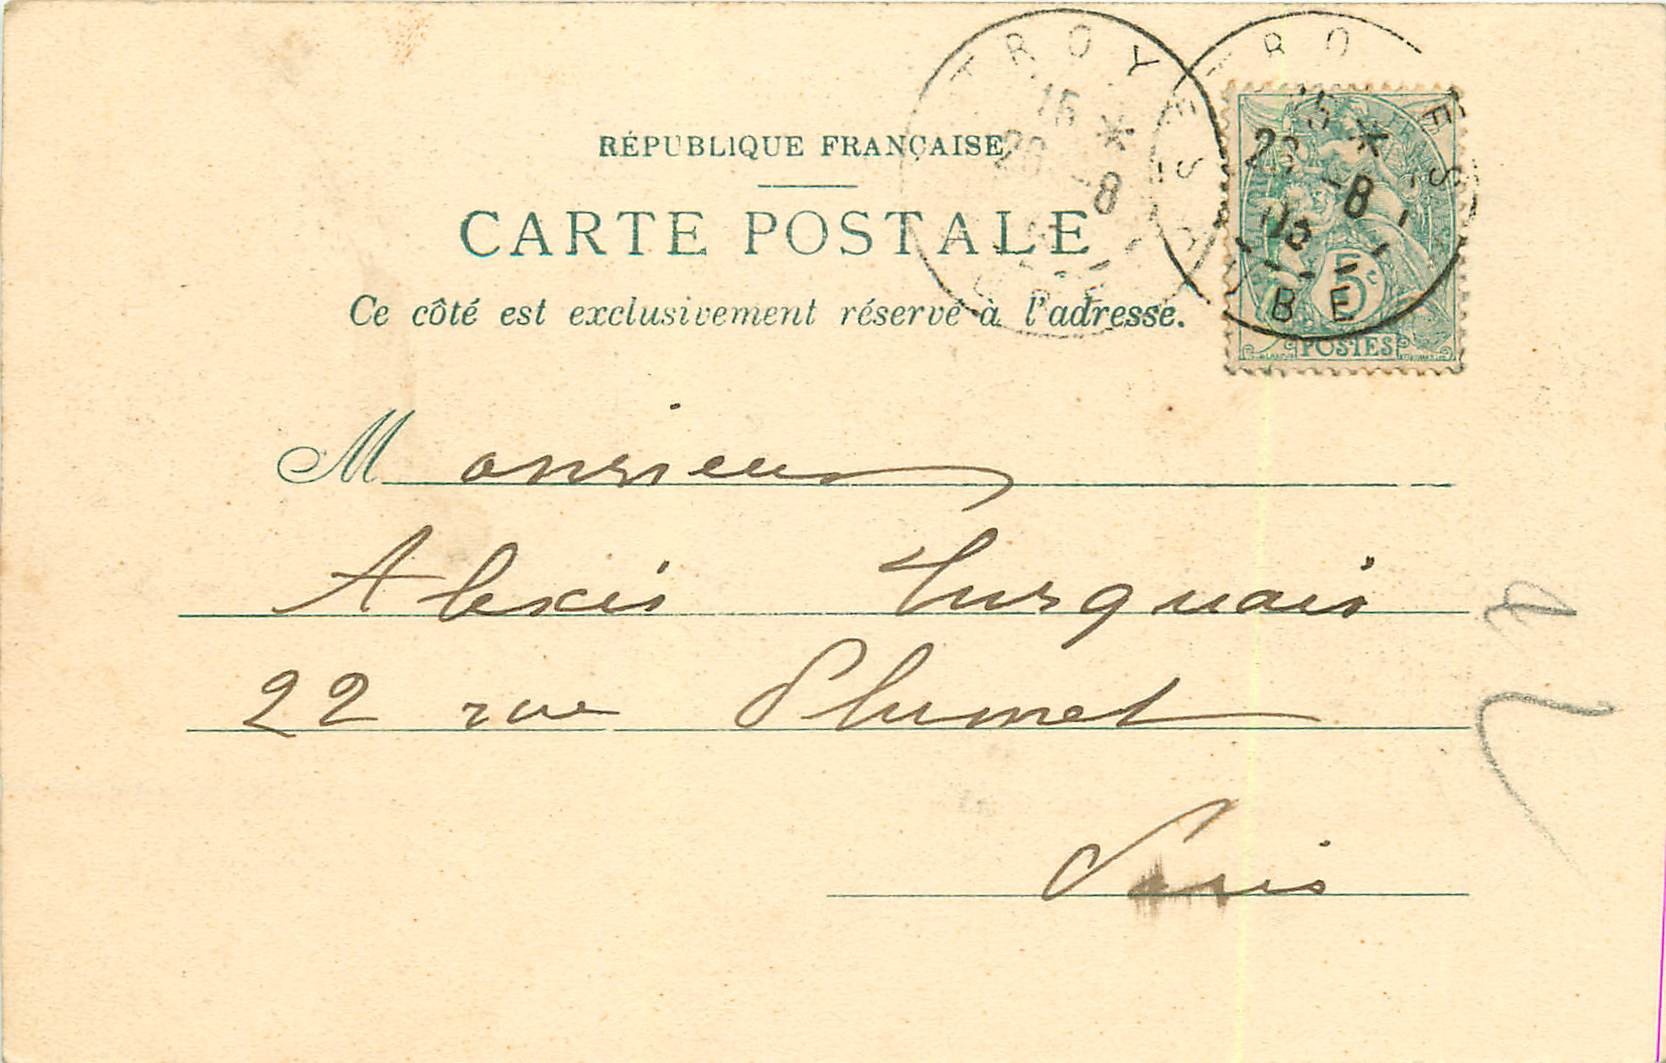 RÉPUBLIQUE FRANÇAISE
CARTE POSTALE
Ce côté est exclusivement réservé à l'adresse.
TROYES
15 *
28 -8
TROYES
15 *
28 -8
05
AUBE
5c
POSTES
Monsieur
Alexis Turquais
22 rue Plumet
Paris